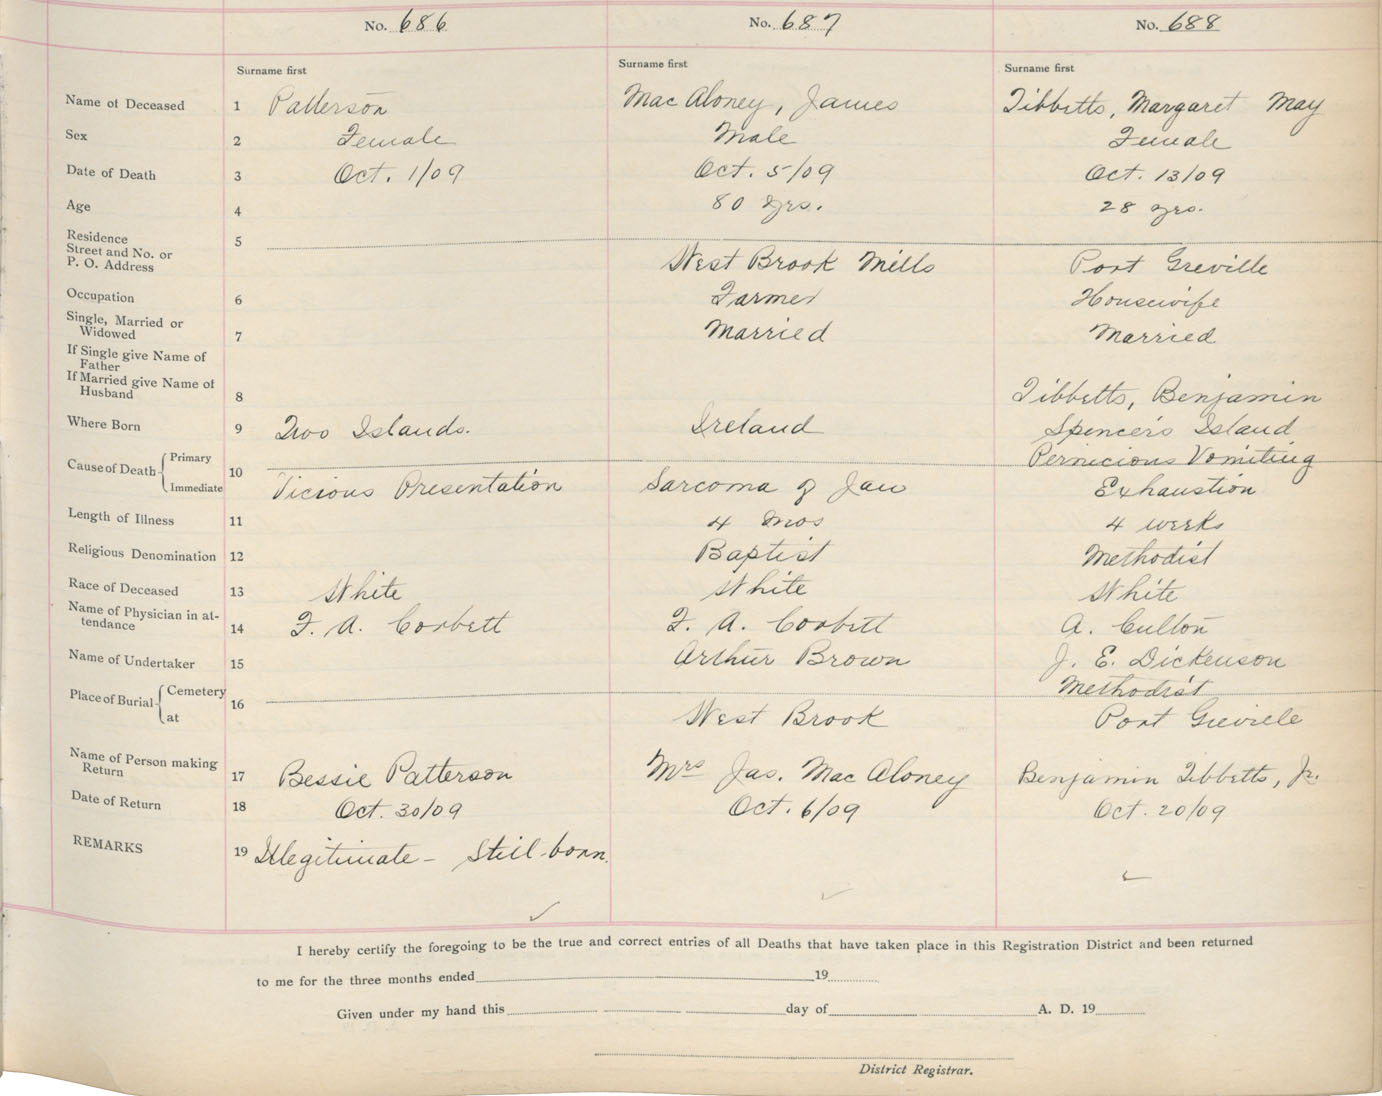 No. 686 No. 687 No. 688
Surname first Surname first Surname first
Name of Deceased 1 Patterson Mac Aloney, James Tibbetts, Margaret May
Sex 2 Female Male Female
Date of Death 3 Oct. 1/09 Oct. 5/09 Oct. 13/09
Age 4 80 yrs. 28 yrs.
Residence 5
Street and No. or
P. O. Address West Brook Mills Port Greville
Occupation 6 Farmer Housewife
Single, Married or
Widowed 7 Married Married
If Single give Name of
Father
If Married give Name of
Husband 8 Tibbetts, Benjamin
Where Born 9 Two Islands. Ireland Spencer's Island
Cause of Death Primary 10 Pernicious Vomiting
Immediate Vicious Presentation Sarcoma of Jaw Exhaustion
Length of Illness 11 4 mos 4 weeks
Religious Denomination 12 Baptist Methodist
Race of Deceased 13 White White White
Name of Physician in at-
tendance 14 F. A. Corbett F. A. Corbett A. Culton
Name of Undertaker 15 Arthur Brown J. E. Dickenson
Place of Burial Cemetery 16 Methodist
at West Brook Port Greville
Name of Person making
Return 17 Bessie Patterson Mrs Jas. Mac Aloney Benjamin Tibbetts, Jr.
Date of Return 18 Oct. 30/09 Oct. 6/09 Oct. 20/09
REMARKS 19 Illegitimate - Still-born.
I hereby certify the foregoing to be the true and correct entries of all Deaths that have taken place in this Registration District and been returned
to me for the three months ended 19
Given under my hand this day of A. D. 19
District Registrar.